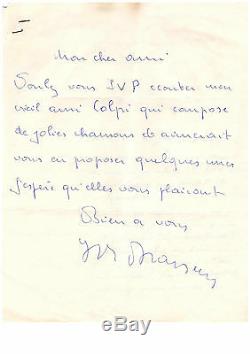 Mon cher ami
Voulez vous SVP écouter mon
vieil ami Colpi qui compose
de jolies chansons et aimerait
vous en proposer quelques unes
j'espère qu'elles vous plairont
Bien a vous